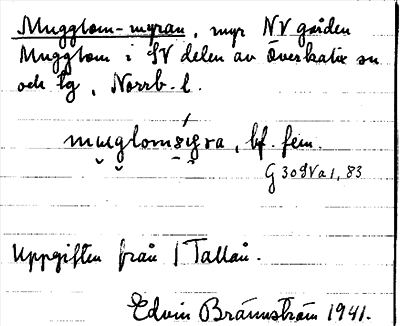 Mugglom-myran, myr NV gården
Mugglom i SV delen av Överkalix sn
och tg, Norrb. l.
muglomsı̨gra, bf. fem.
G 30 SV a 1, 83
Uppgiften från I Tallån.
Edvin Brännström 1941.